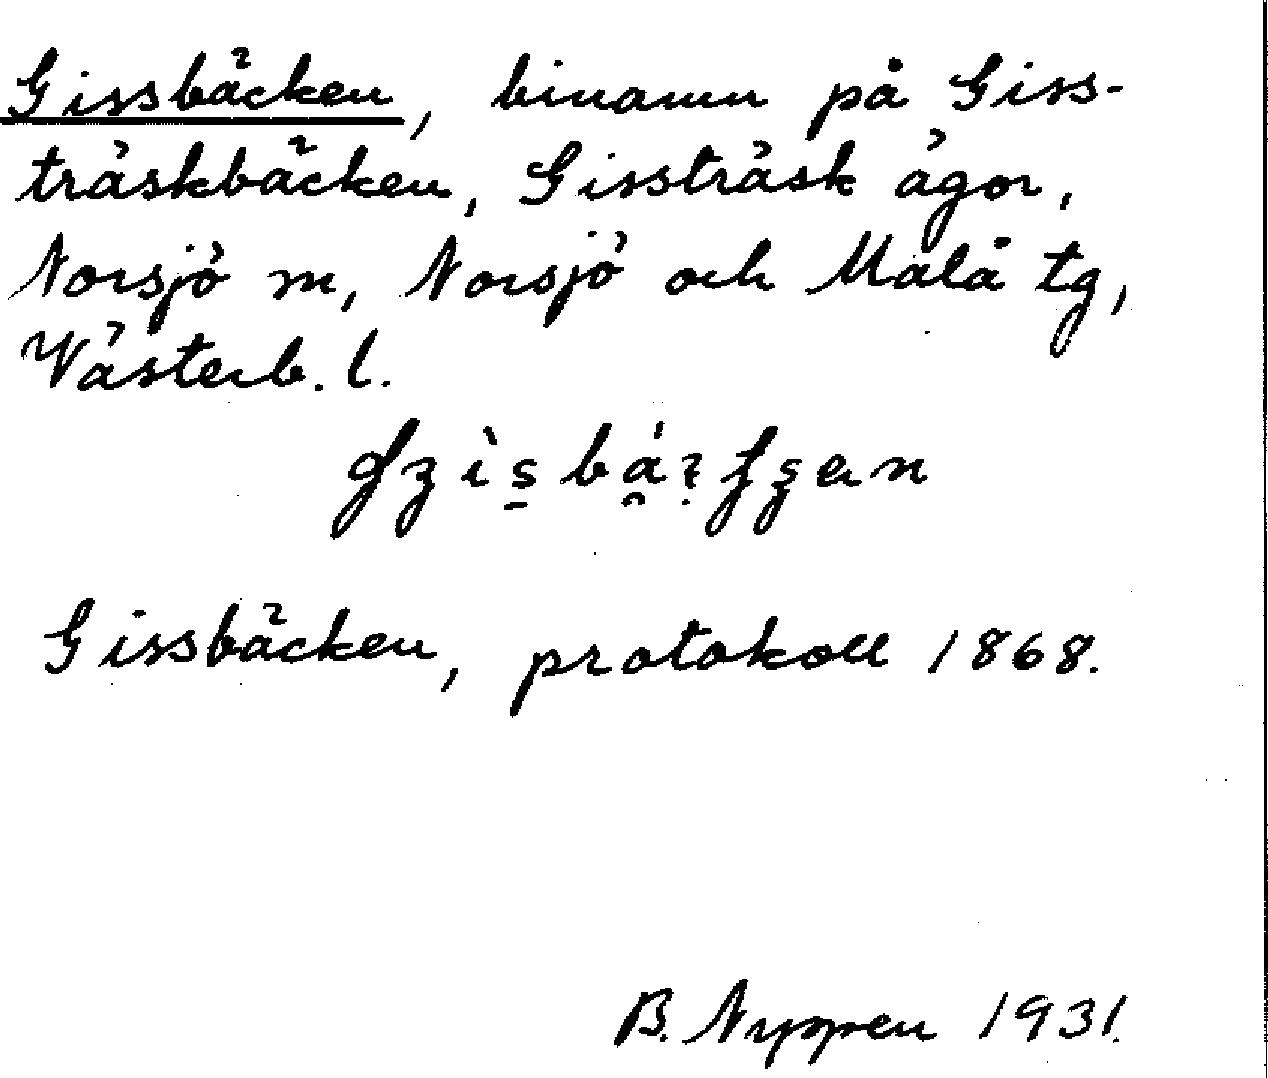 Gissbäcken, binamn på Giss-
träskbäcken, Gissträsk ägor,
Norsjö sn, Norsjö och Malå tg,
Västerb. l.
Gissbäcken, protokoll 1868.
B. Nyppen 1931.